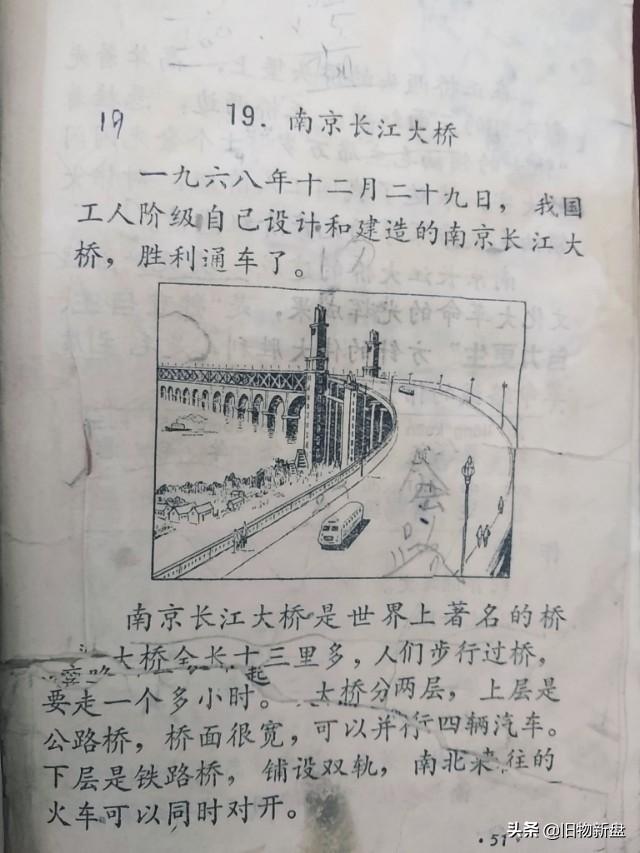 19
19. 南京长江大桥
一九六八年十二月二十九日，我国
工人阶级自己设计和建造的南京长江大
桥，胜利通车了。
南京长江大桥是世界上著名的桥
大桥全长十三里多，人们步行过桥，
要走一个多小时。 大桥分两层，上层是
公路桥，桥面很宽，可以并行四辆汽车。
下层是铁路桥，铺设双轨，南北来往的
火车可以同时对开。
·51·
头条 @旧物新盘